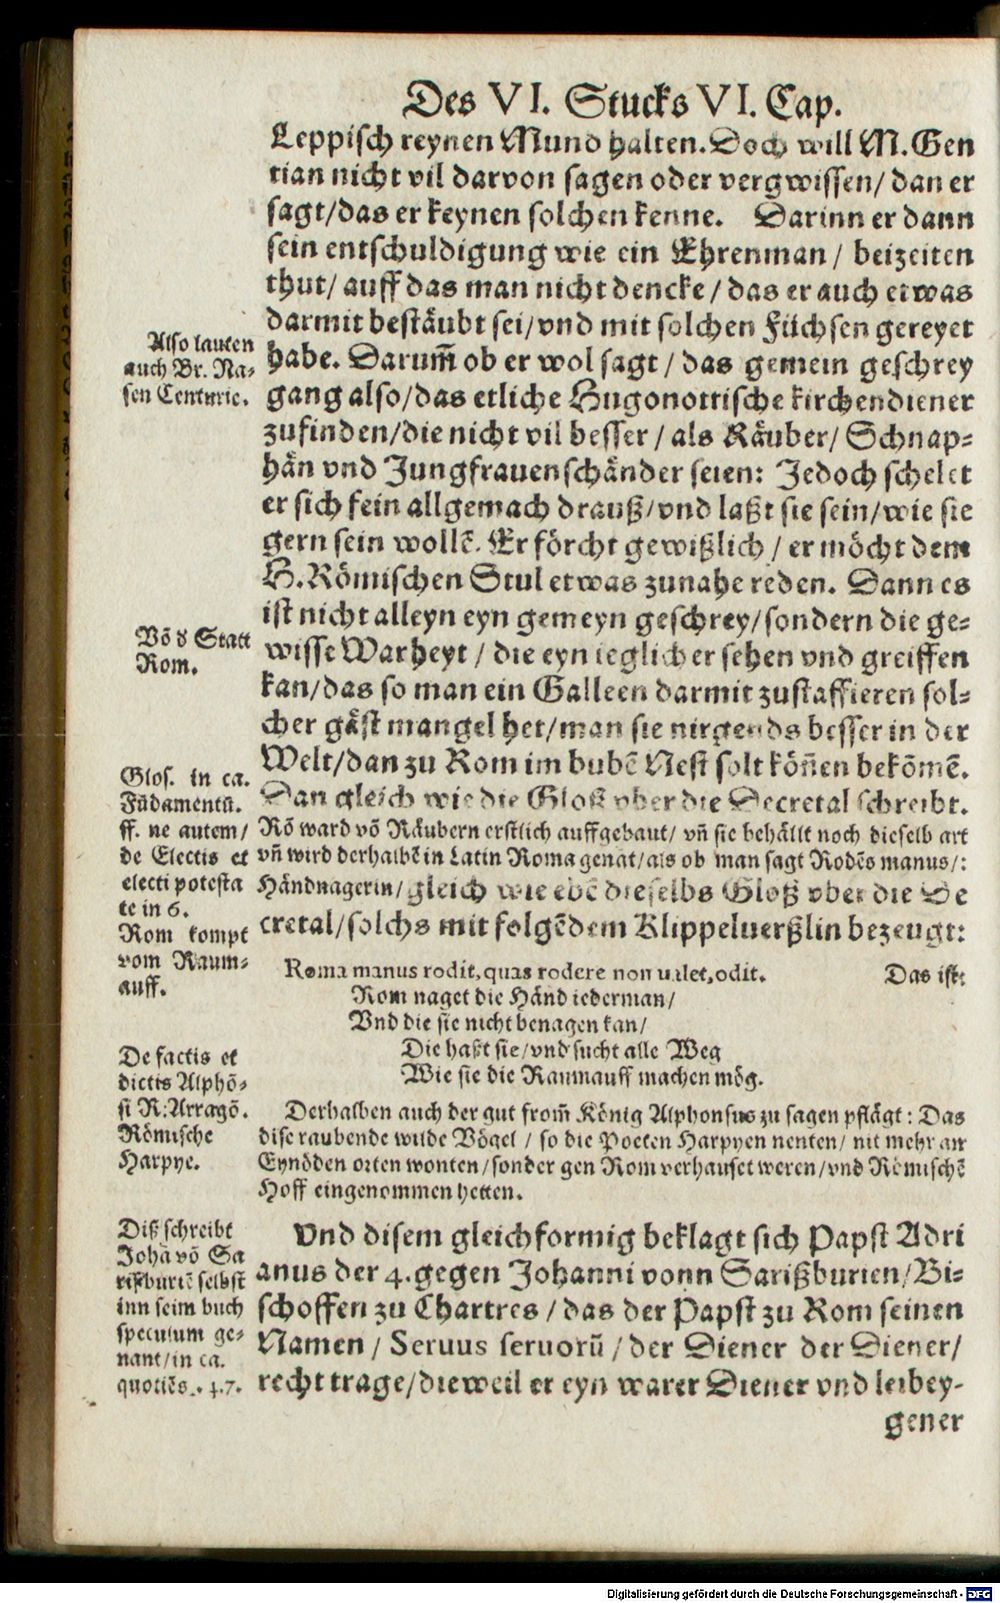 Des VI. Stucks VI. Cap.
Leppisch reynen Mund halten. Doch will M. Gen
tian nicht vil darvon sagen oder vergwissen/ dan er
sagt/das er keynen solchen kenne. Darinn er dann
sein entschuldigung wie ein Ehrenman / beizeiten
thut/ auff das man nicht dencke / das er auch etwas
darmit bestäubt sei/vnd mit solchen Füchsen gereyet
habe. Darum̃ ob er wol sagt / das gemein geschrey
gang also/das etliche Hugonottische kirchendiener
zufinden/die nicht vil besser / als Räuber/ Schnap-
hän vnd Jungfrauenschänder seien: Jedoch schelet
er sich fein allgemach drauß/vnd laßt sie sein/wie sie
gern sein wollẽ. Er förcht gewißlich / er möcht dem
H. Römischen Stul etwas zunahe reden. Dann es
ist nicht alleyn eyn gemeyn geschrey/sondern die ge-
wisse Warheyt / die eyn ieglicher sehen vnd greiffen
kan/das so man ein Galleen darmit zustaffieren sol-
cher gäst mangel het/man sie nirgends besser in der
Welt/dan zu Rom im bubẽ Nest solt kön̄en bekõmẽ.
Dan gleich wie die Gloß vber die Decretal schreibt.
Rõ ward võ Räubern erstlich auffgebaut/ vñ sie behällt noch dieselb art
vñ wird derhalbẽ in Latin Roma genãt/als ob man sagt Rodẽs manus/:
Händnagerin/gleich wie ebẽ dieselbs Gloß vber die De
cretal/solchs mit folgẽdem Klippelverßlin bezeugt:
Roma manus rodit, quas rodere non valet, odit. Das ist:
Rom naget die Händ iederman/
Vnd die sie nicht benagen kan/
Die haßt sie/vnd sucht alle Weg
Wie sie die Raumauff machen mög.
Derhalben auch der gut from̃ König Alphonsus zu sagen pflägt: Das
dise raubende wilde Vögel / so die Poeten Harpyen nenten/ nit mehr an
Eynöden orten wonten/sonder gen Rom verhauset weren/vnd Römischẽ
Hoff eingenommen hetten.
Vnd disem gleichformig beklagt sich Papst Adri
anus der 4. gegen Johanni vonn Sarißburien/Bi-
schoffen zu Chartres / das der Papst zu Rom seinen
Namen / Seruus seruorũ / der Diener der Diener/
recht trage/dieweil er eyn warer Diener vnd leibey-
gener
Also lauten
auch Br. Na-
sen Centurie.
Võ d Statt
Rom.
Glos. in ca.
Fũdamentũ.
ff. ne autem/
de Electis et
electi potesta
te in 6.
Rom kompt
vom Raum-
auff.
De factis et
dictis Alphõ-
si R: Arragõ.
Römische
Harpye.
Diß schreibt
Johã võ Sa
rißburiẽ selbst
inn seim buch
speculum ge-
nant/in ca.
quotiẽs. 47.
Digitalisierung gefördert durch die Deutsche Forschungsgemeinschaft - DFG